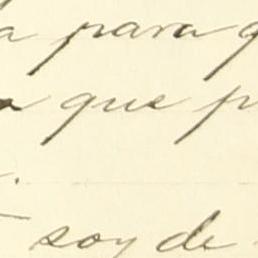 para
que
soy de